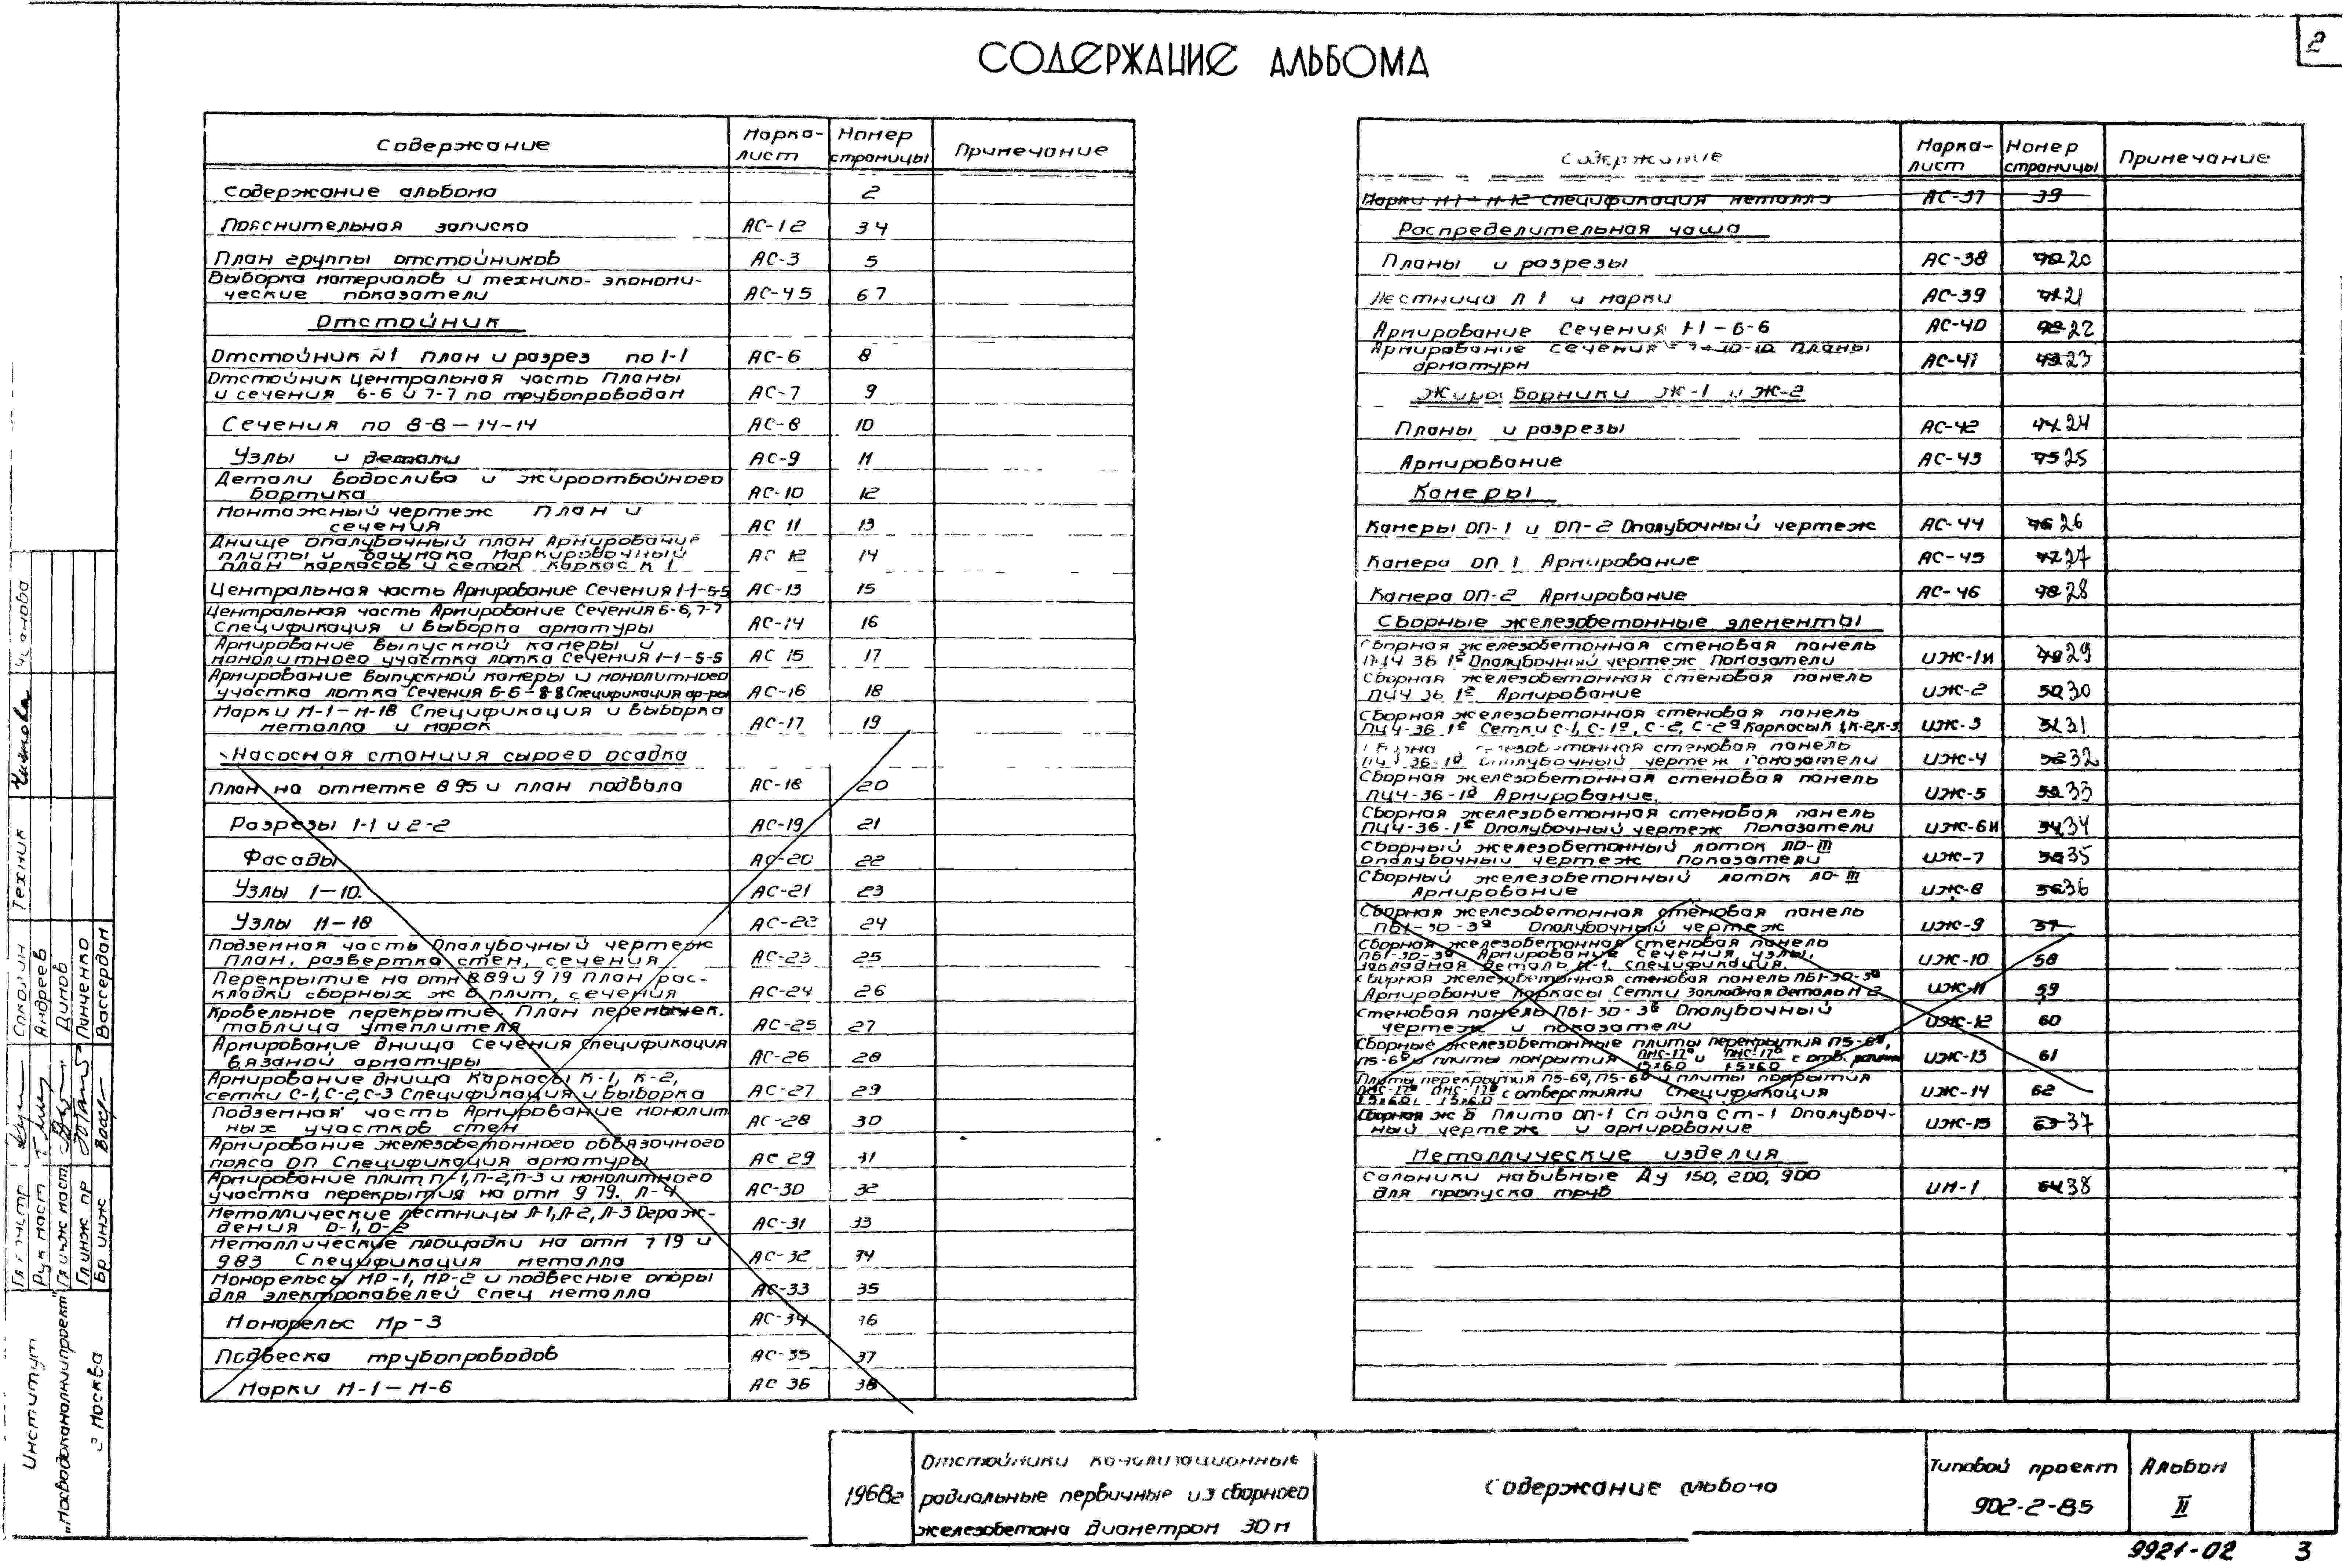 2
СОДЕРЖАНИЕ АЛЬБОМА
Содержание Марка-лист Номер страницы Примечание
Содержание альбома 2
Пояснительная записка АС-1 2 3 4
План группы отстойников АС-3 5
Выборка материалов и технико-экономи-
ческие показатели АС-4 5 6 7
Отстойник
Отстойник N1 План и разрез по 1-1 АС-6 8
Отстойник Центральная часть Планы
и сечения 6-6 и 7-7 по трубопроводам АС-7 9
Сечения по 8-8 — 14-14 АС-8 10
Узлы и детали АС-9 11
Детали водослива и жироотбойного
бортика АС-10 12
Монтажный чертеж План и
сечения АС 11 13
Днище Опалубочный план Армирование
плиты и башмака Маркировочный
план каркасов и сеток Каркас К 1 АС 12 14
Центральная часть Армирование Сечения 1-1-5-5 АС-13 15
Центральная часть Армирование Сечения 6-6, 7-7
Спецификация и выборка арматуры АС-14 16
Армирование выпускной камеры и
монолитного участка лотка Сечения 1-1-5-5 АС 15 17
Армирование выпускной камеры и монолитного
участка лотка Сечения 6-6-8-8 Спецификация ар-ры АС-16 18
Марки М-1-М-18 Спецификация и выборка
металла и марок АС-17 19
Насосная станция сырого осадка
План на отметке 8 95 и план подвала АС-18 20
Разрезы 1-1 и 2-2 АС-19 21
Фасады АС-20 22
Узлы 1-10. АС-21 23
Узлы 11-18 АС-22 24
Подземная часть Опалубочный чертеж
план, развертка стен, сечения АС-23 25
Перекрытие на отм 8 89 и 9 79 План рас-
кладки сборных ж б плит, сечения АС-24 26
Кровельное перекрытие План перемычек.
таблица утеплителя АС-25 27
Армирование днища Сечения Спецификация
вязаной арматуры АС-26 28
Армирование днища Каркасы К-1, К-2,
сетки С-1, С-2, С-3 Спецификация и выборка АС-27 29
Подземная часть Армирование монолит
ных участков стен АС-28 30
Армирование железобетонного обвязочного
пояса ОП Спецификация арматуры АС 29 31
Армирование плит П-1, П-2, П-3 и монолитного
участка перекрытия на отм 9 79. Л-4 АС-30 32
Металлические лестницы Л-1, Л-2, Л-3 Ограж-
дения О-1, О-2 АС-31 33
Металлические площадки на отм 7 19 и
9 83 Спецификация металла АС-32 34
Монорельсы МР-1, МР-2 и подвесные опоры
для электрокабелей Спец металла АС-33 35
Монорельс Мр-3 АС-34 36
Подвеска трубопроводов АС-35 37
Марки М-1-М-6 АС 36 38
Содержание Марка-лист Номер страницы Примечание
Марки М 7 - М-12 Спецификация металла АС-37 39
Распределительная чаша
Планы и разрезы АС-38 40 20
Лестница Л 1 и марки АС-39 41 21
Армирование Сечения 1-1-6-6 АС-40 42 22
Армирование сечения 7-7-10-10 Планы
арматуры АС-41 43 23
Жиросборники Ж-1 и Ж-2
Планы и разрезы АС-42 44 24
Армирование АС-43 45 25
Камеры
Камеры ОП-1 и ОП-2 Опалубочный чертеж АС-44 46 26
Камера ОП 1 Армирование АС-45 47 27
Камера ОП-2 Армирование АС-46 48 28
Сборные железобетонные элементы
Сборная железобетонная стеновая панель
ПЦЧ 36 1г Опалубочный чертеж Показатели ИЖ-1и 49 29
Сборная железобетонная стеновая панель
ПЦЧ 36 1г Армирование ИЖ-2 50 30
Сборная железобетонная стеновая панель
ПЦЧ-36 1г Сетки С-1, С-1а, С-2, С-2а Каркасы К 1, К-2, К-3 ИЖ-3 51 31
Сборная железобетонная стеновая панель
ПЦЧ-36-1д Опалубочный чертеж Показатели ИЖ-4 52 32
Сборная железобетонная стеновая панель
ПЦЧ-36-1д Армирование. ИЖ-5 53 33
Сборная железобетонная стеновая панель
ПЦЧ-36-1е Опалубочный чертеж Показатели ИЖ-6и 54 34
Сборный железобетонный лоток ЛО-III
опалубочный чертеж показатели ИЖ-7 55 35
Сборный железобетонный лоток ЛО-III
Армирование ИЖ-8 56 36
Сборная железобетонная стеновая панель
ПБ1-30-3а Опалубочный чертеж ИЖ-9 57
Сборная железобетонная стеновая панель
ПБ1-30-3а Армирование Сечения узлы,
закладная деталь М-1. спецификация. ИЖ-10 58
Сборная железобетонная стеновая панель ПБ1-30-3а
Армирование Каркасы Сетки Закладная деталь М 2 ИЖ-11 59
Стеновая панель ПБ1-30-3б Опалубочный
чертеж и показатели ИЖ-12 60
Сборные железобетонные плиты перекрытия П5-6а,
П5-6б и плиты покрытия ПНС-17а/1.5х6.0 и ПНС-17б/1.5х6.0 с отв. ИЖ-13 61
Плиты перекрытия П5-6а, П5-6б и плиты покрытия
ПНС-17а/1.5х6.0, ПНС-17б/1.5х6.0 с отверстиями Спецификация ИЖ-14 62
Сборная ж б Плита ОП-1 Стойка Ст-1 Опалубоч-
ный чертеж и армирование ИЖ-15 63 37
Металлические изделия
Сальники набивные Ду 150, 200, 900
для пропуска труб ИМ-1 64 38
Институт
„Мосводоканалниипроект"
г Москва
Рук маст
Гл инж маст
Гл инж пр
Бр инж
Соколин
Андреев
Димов
Панченко
Вассердан
Техник
1968г
Отстойники канализационные
радиальные первичные из сборного
железобетона диаметром 30 м
Содержание альбома
Типовой проект
902-2-85
Альбом
II
9921-02 3